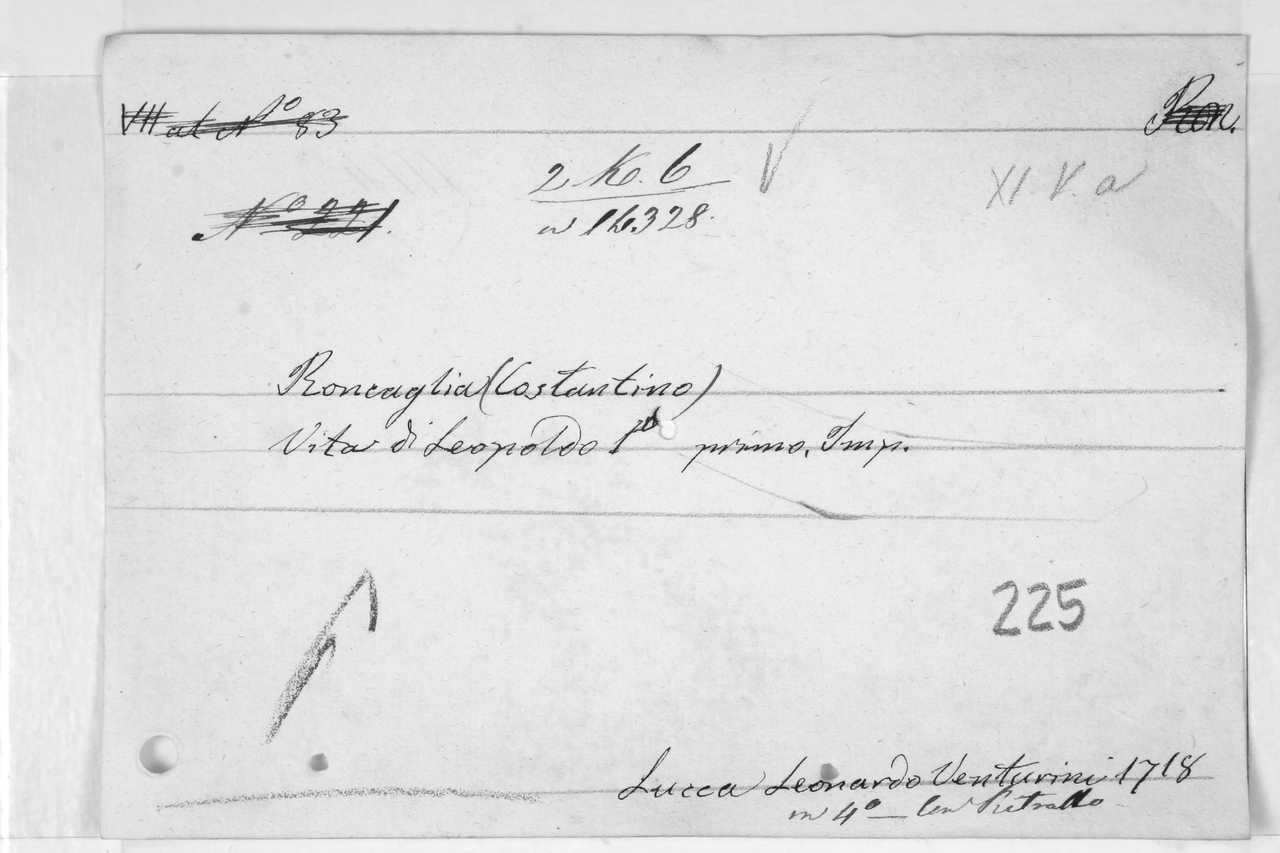 VII al Nº 83
Ron.
2 K. 6
XI. V. a
Nº 221.
16.328.
Roncaglia (Costantino)
Vita di Leopoldo Iº primo. Imp.
225
Lucca Leonardo Venturini 1718
in 4º — Con Ritratto